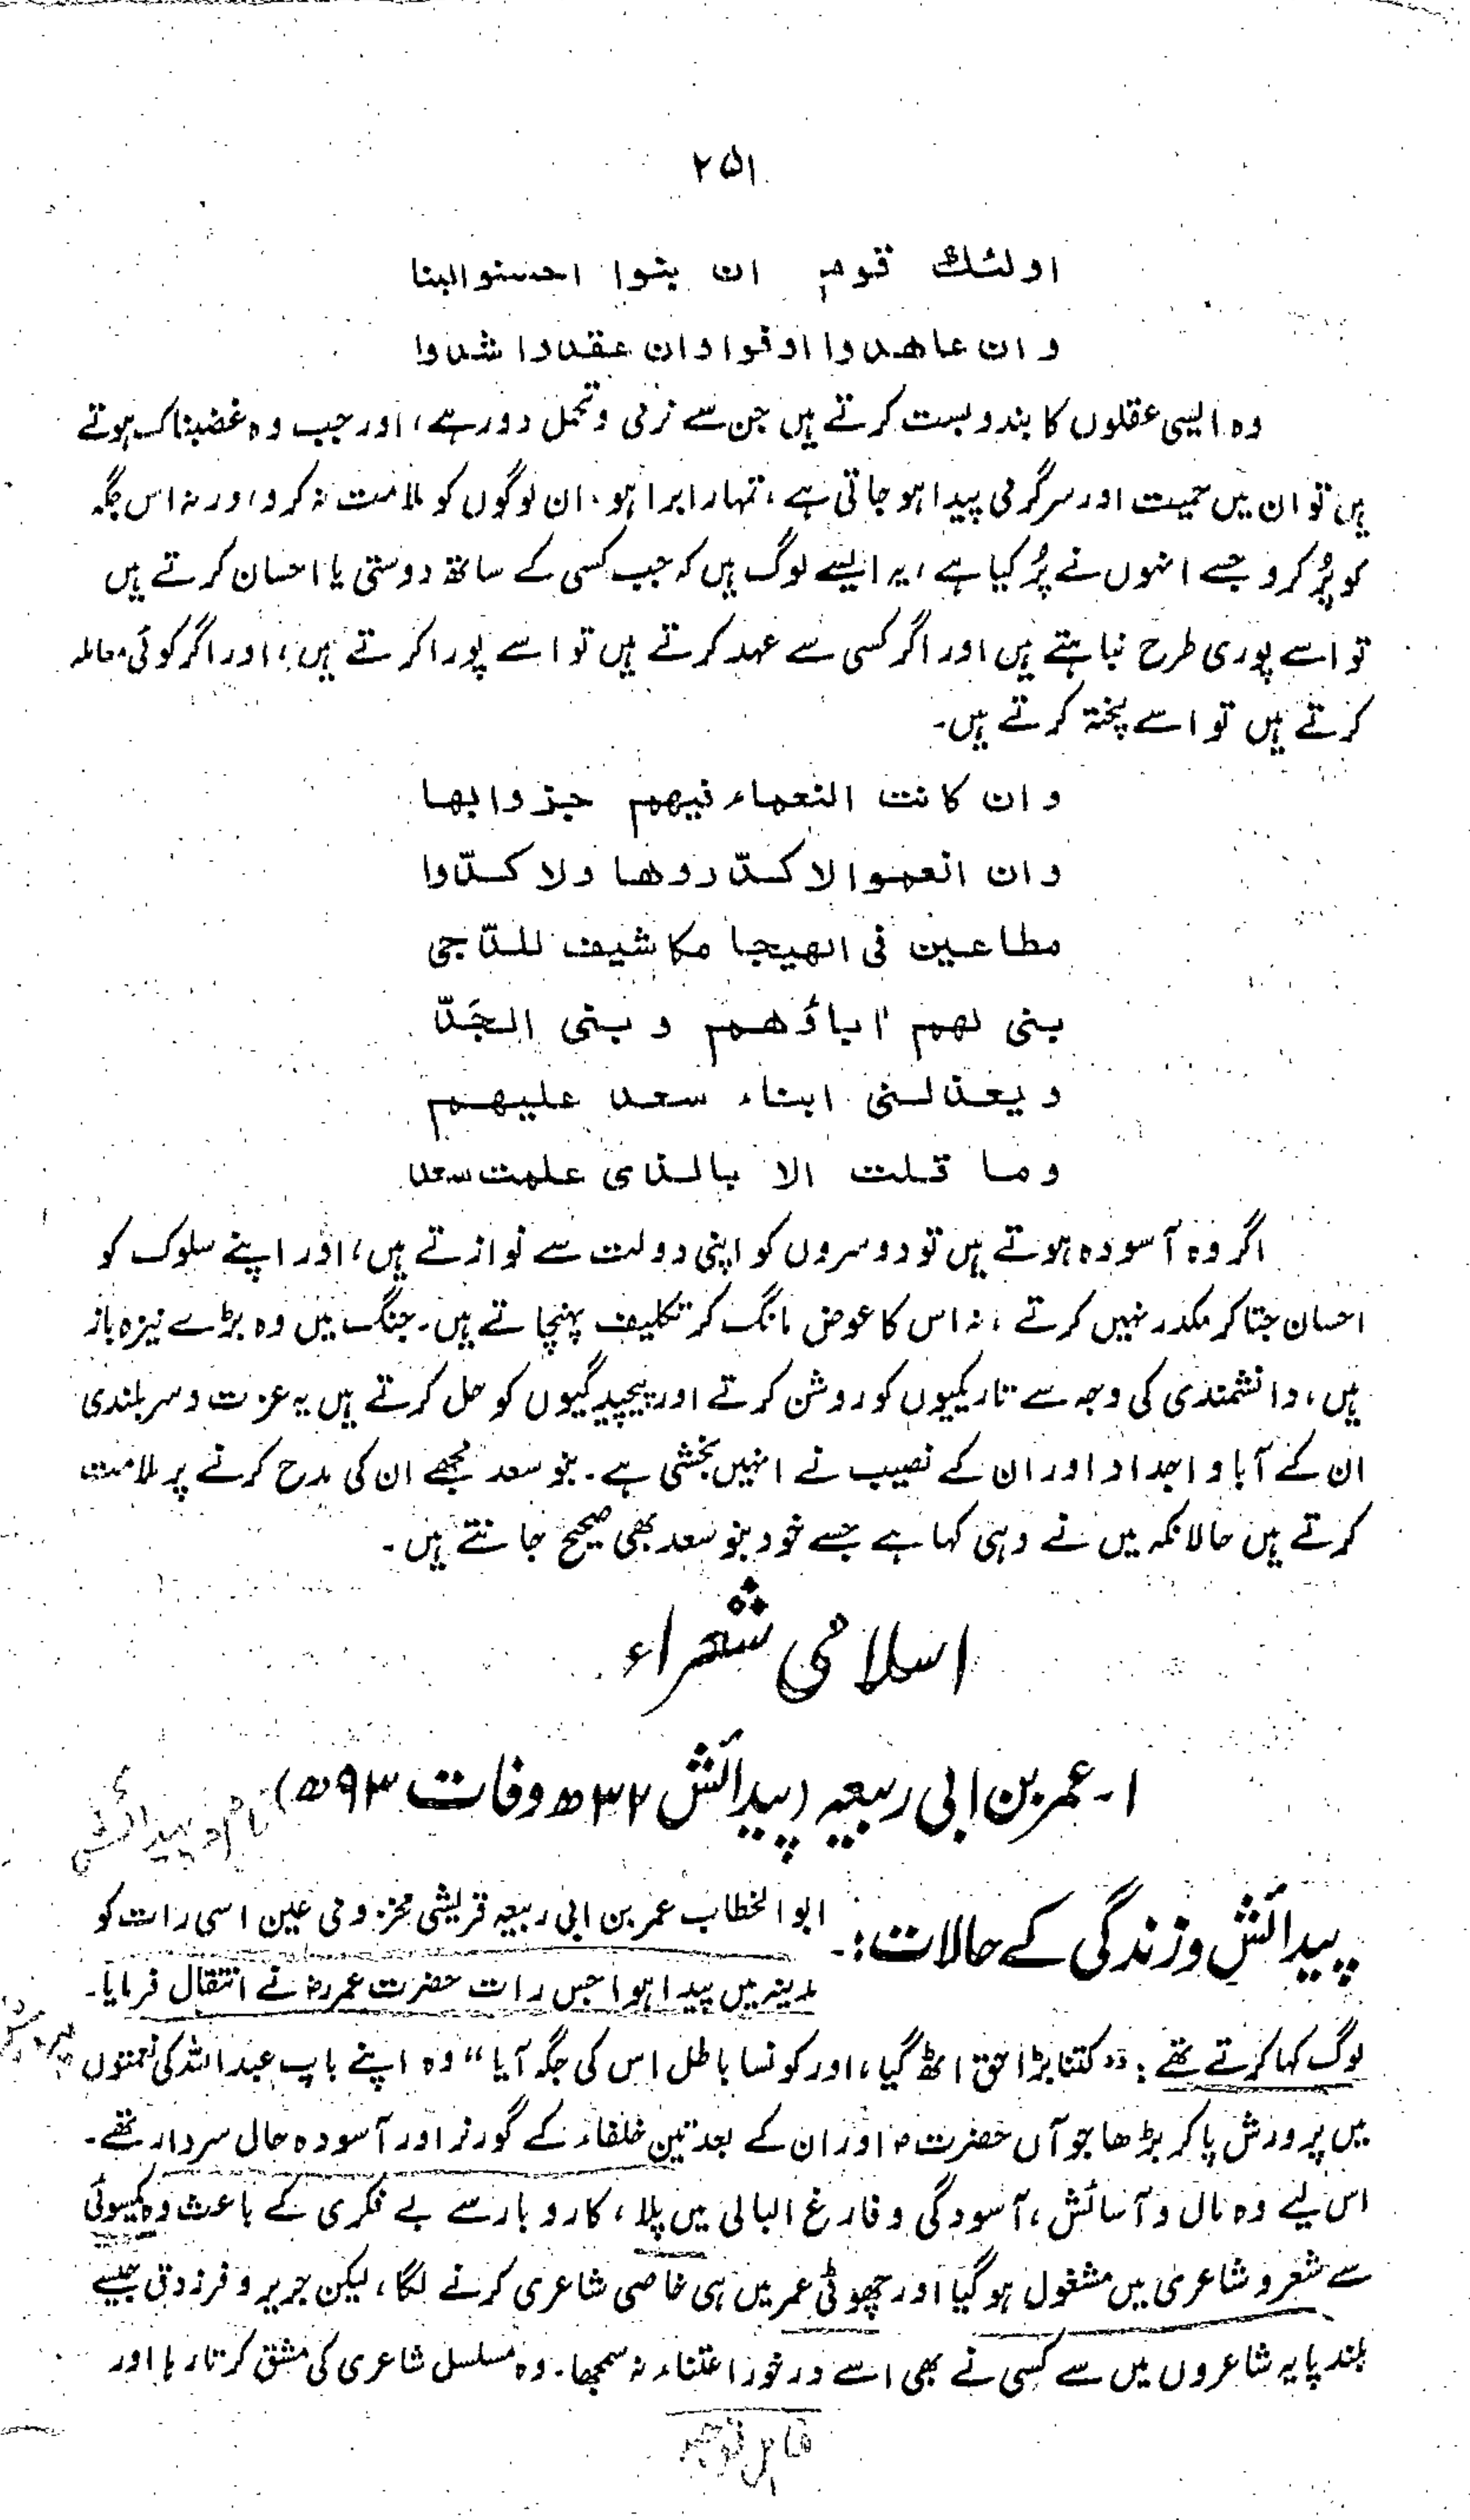 ۲۵۱
اولئك قوم ان بنوا احسنوا البنا
وان عاهدوا اوفوا وان عقدوا شدوا
وہ ایسی عقلوں کا بندوبست کرتے ہیں جن سے نرمی وتحمل دور ہے، اور جب وہ غضبناک ہوتے
ہیں تو ان میں حمیت اور سرگرمی پیدا ہو جاتی ہے، تمہارا برا ہو، ان لوگوں کو ملامت نہ کرو اور نہ اس جگہ
کو پُر کرو جسے انہوں نے پُر کیا ہے، یہ ایسے لوگ ہیں کہ جب کسی کے ساتھ دوستی یا احسان کرتے ہیں
تو اسے پوری طرح نباہتے ہیں اور اگر کسی سے عہد کرتے ہیں تو اسے پورا کرتے ہیں، اور اگر کوئی معاملہ
کرتے ہیں تو اسے پختہ کرتے ہیں۔
وان كانت النعماء فيهم جزوا بها
وان انعموا لا كدّروها ولا كدّوا
مطاعين فى الهيجا مكاشيف للدّجى
بنى لهم اٰباؤهم وبنى الجَدّ
ويعذلنى ابناء سعد عليهم
وما قلت الا بالذى علمت سعد
اگر وہ آسودہ ہوتے ہیں تو دوسروں کو اپنی دولت سے نوازتے ہیں، اور اپنے سلوک کو
احسان جتا کر مکدر نہیں کرتے، نہ اس کا عوض مانگ کر تکلیف پہنچاتے ہیں۔ جنگ میں وہ بڑے نیزہ باز
ہیں، دانشمندی کی وجہ سے تاریکیوں کو روشن کرتے اور پیچیدگیوں کو حل کرتے ہیں یہ عزت و سربلندی
ان کے آباو اجداد اور ان کے نصیب نے انہیں بخشی ہے۔ بنو سعد مجھے ان کی مدح کرنے پر ملامت
کرتے ہیں حالانکہ میں نے وہی کہا ہے جسے خود بنو سعد بھی صحیح جانتے ہیں۔
اسلامی شعراء
۱۔ عمر بن ابی ربیعہ (پیدائش ۲۳ھ وفات ۹۳ھ)
نام و پیدائش
پیدائش و زندگی کے حالات:۔ ابو الخطاب عمر بن ابی ربیعہ قریشی مخزومی عین اسی رات کو
مدینہ میں پیدا ہوا جس رات حضرت عمرؓ نے انتقال فرمایا۔
لوگ کہا کرتے تھے: "کتنا بڑا حق اٹھ گیا، اور کونسا باطل اس کی جگہ آیا" وہ اپنے باپ عبداللہ کی نعمتوں
میں پرورش پا کر بڑھا جو آں حضرتؐ اور ان کے بعد تین خلفاء کے گورنر اور آسودہ حال سردار تھے۔
اس لیے وہ مال و آسائش، آسودگی و فارغ البالی میں پلا، کاروبار سے بے فکری کے باعث وہ یکسوئی
سے شعر و شاعری میں مشغول ہو گیا اور چھوٹی عمر میں ہی خاصی شاعری کرنے لگا، لیکن جریر و فرزدق جیسے
بلند پایہ شاعروں میں سے کسی نے بھی اسے در خور اعتناء نہ سمجھا۔ وہ مسلسل شاعری کی مشق کرتا رہا اور
قابل توجہ